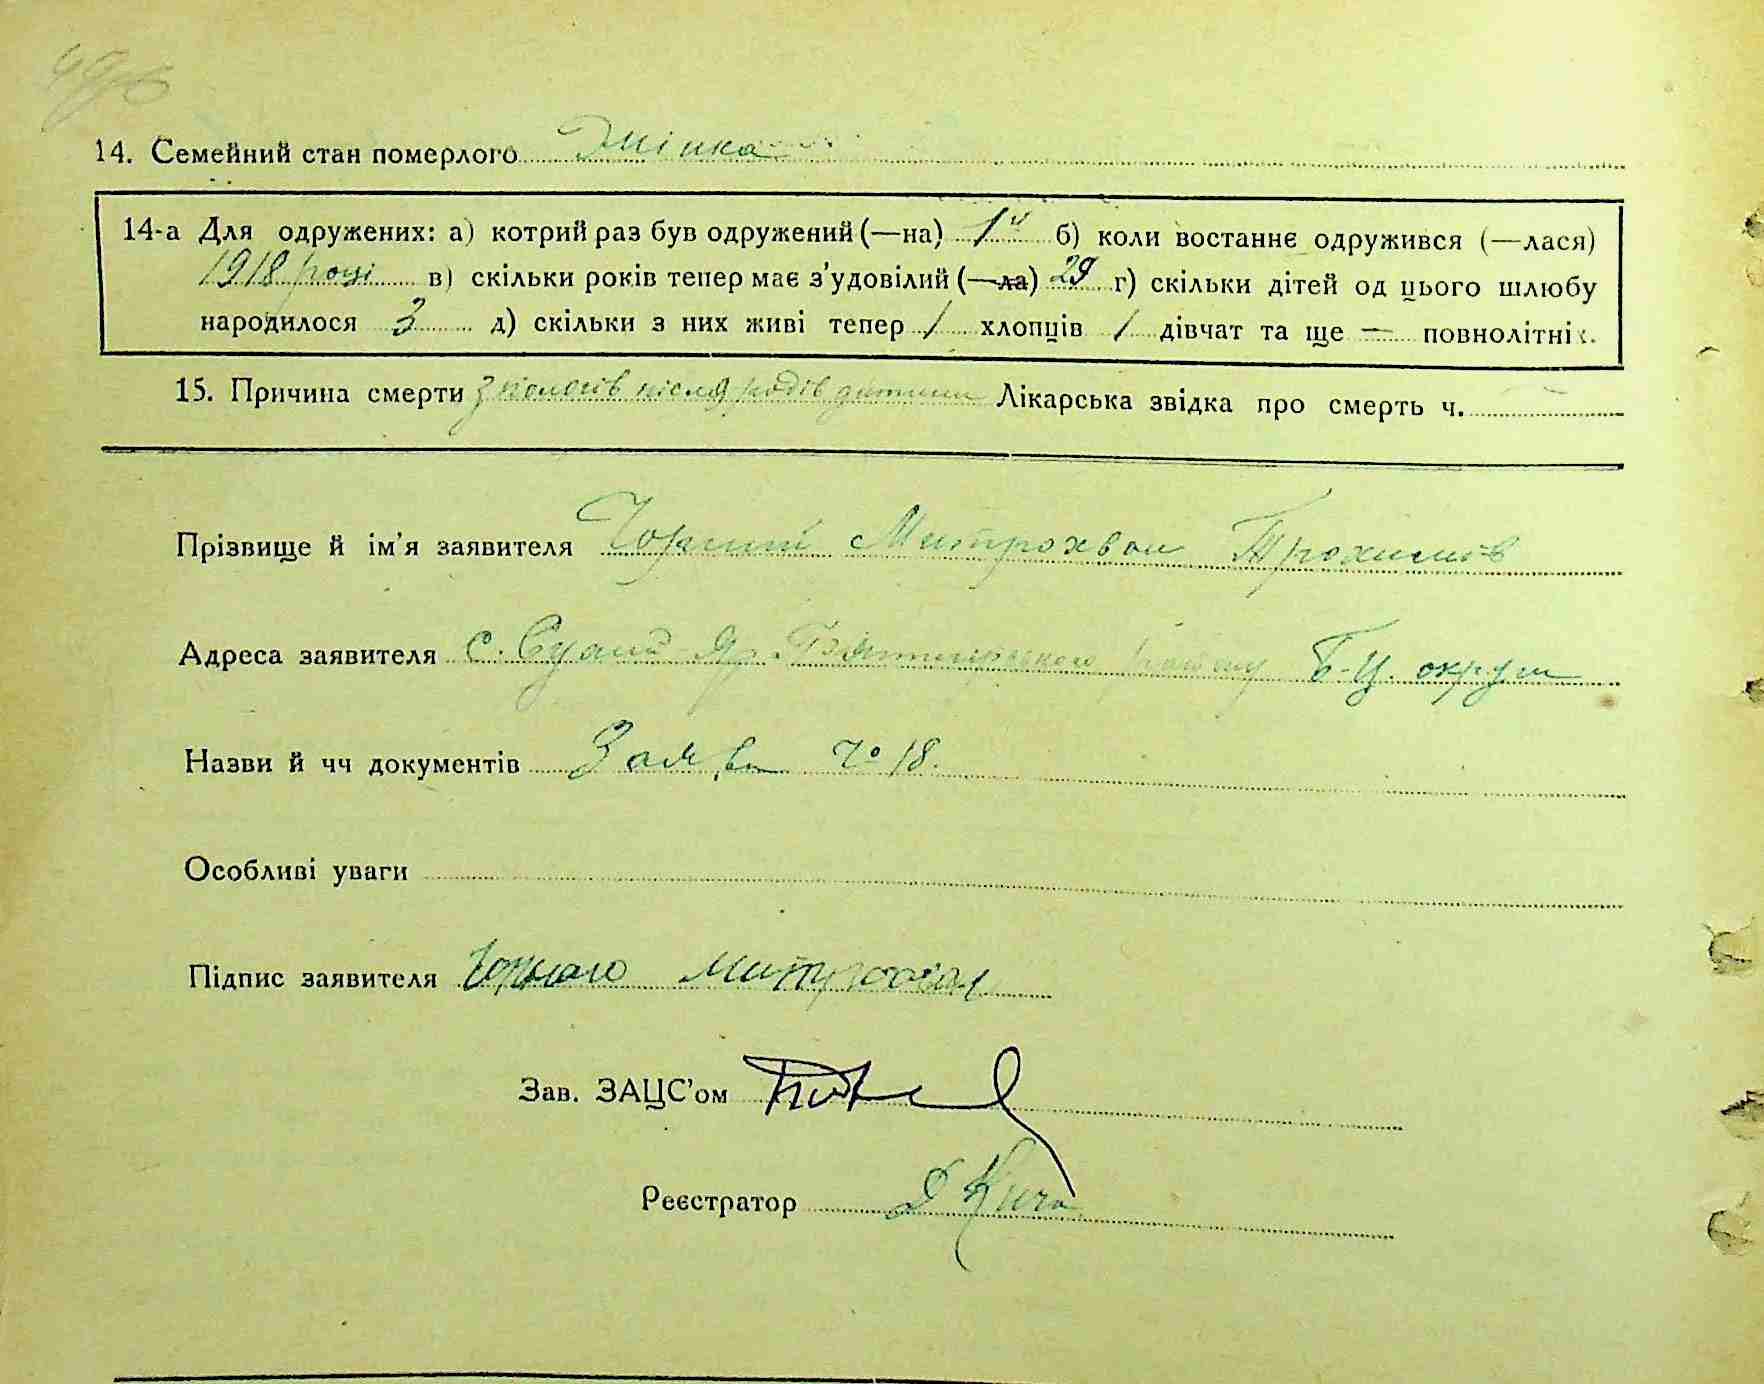 14. Семейний стан померлого Жінка
14-а Для одружених: а) котрий раз був одружений (—на) 1й б) коли востаннє одружився (—лася)
1918 році в) скільки років тепер має з’удовілий (—ла) 29 г) скільки дітей од цього шлюбу
народилося 3 д) скільки з них живі тепер 1 хлопців 1 дівчат та ще — повнолітніх.
15. Причина смерти з пологів після родів дитини Лікарська звідка про смерть ч.
Прізвище й ім’я заявителя Чорний Митрохван Трохимів
Адреса заявителя с. Сухий Яр. району Б-Ц. округи
Назви й чч документів Заява Чо 18.
Особливі уваги
Підпис заявителя Чорного
Зав. ЗАЦС’ом
Реєстратор